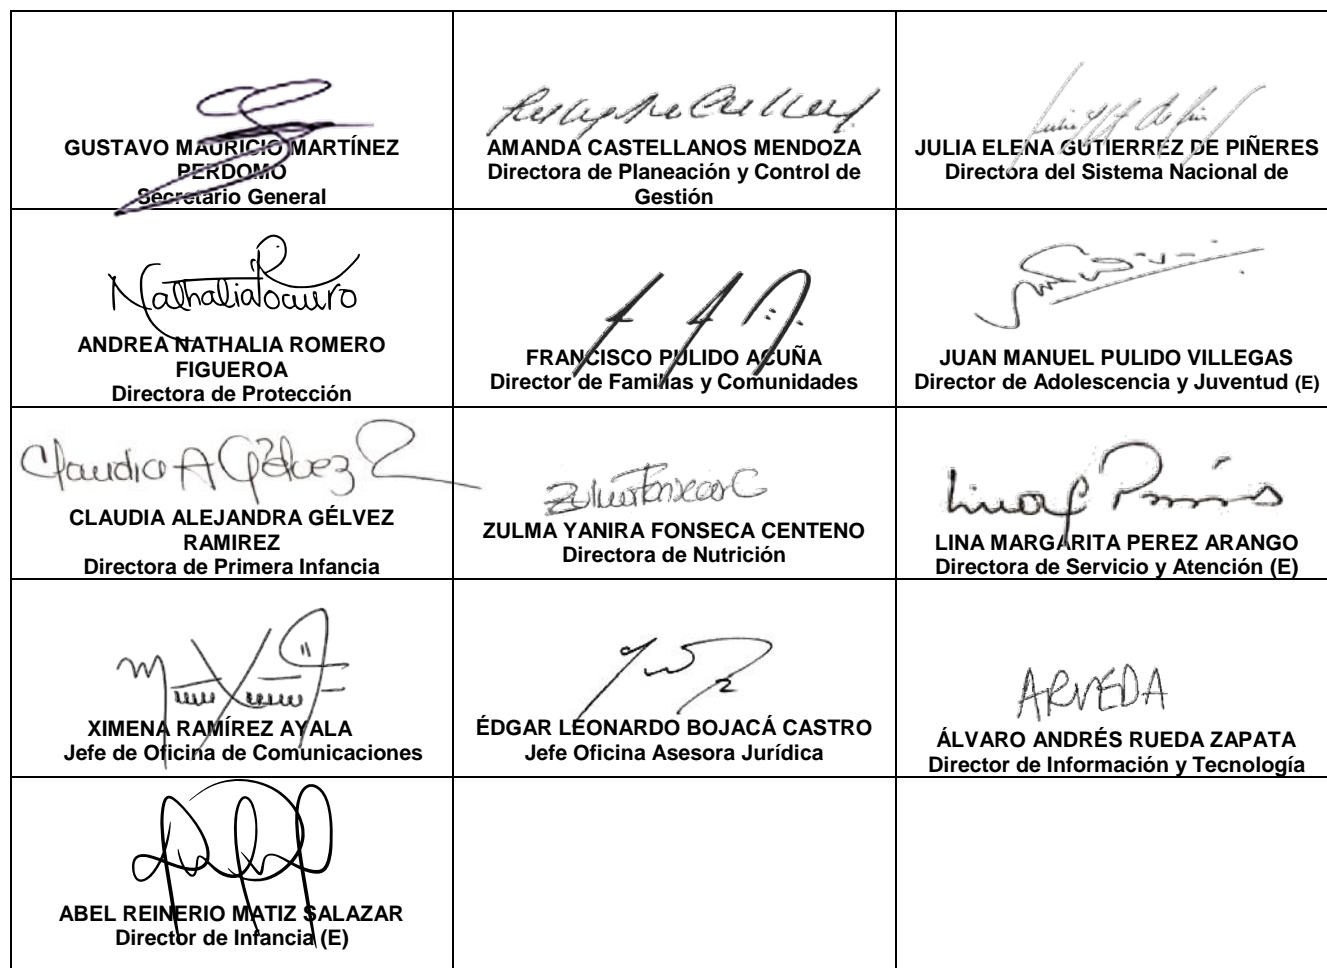 GUSTAVO MAURICIO MARTÍNEZ
PERDOMO
Secretario General
AMANDA CASTELLANOS MENDOZA
Directora de Planeación y Control de
Gestión
JULIA ELENA GUTIERREZ DE PIÑERES
Directora del Sistema Nacional de
ANDREA NATHALIA ROMERO
FIGUEROA
Directora de Protección
FRANCISCO PULIDO ACUÑA
Director de Familias y Comunidades
JUAN MANUEL PULIDO VILLEGAS
Director de Adolescencia y Juventud (E)
Claudia A Gélvez R
CLAUDIA ALEJANDRA GÉLVEZ
RAMIREZ
Directora de Primera Infancia
Zulma Fonseca C
ZULMA YANIRA FONSECA CENTENO
Directora de Nutrición
LINA MARGARITA PEREZ ARANGO
Directora de Servicio y Atención (E)
XIMENA RAMÍREZ AYALA
Jefe de Oficina de Comunicaciones
ÉDGAR LEONARDO BOJACÁ CASTRO
Jefe Oficina Asesora Jurídica
ARVEDA
ÁLVARO ANDRÉS RUEDA ZAPATA
Director de Información y Tecnología
ABEL REINERIO MATIZ SALAZAR
Director de Infancia (E)